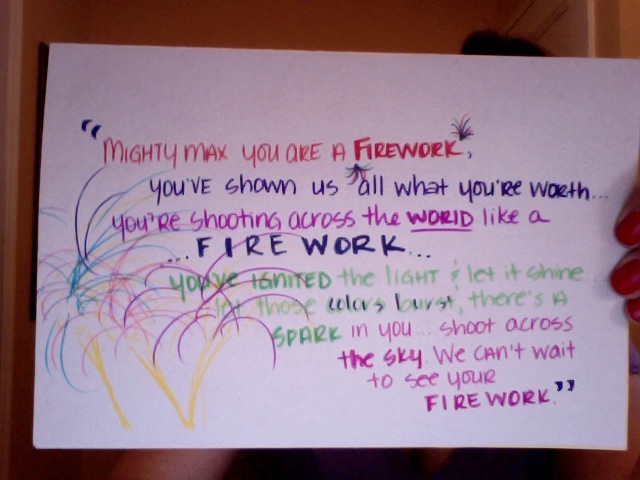 "MIGHTY MAX YOU ARE A FIREWORK,
YOU'VE shown us all what you're worth...
you're shooting across the WORLD like a
...FIRE WORK...
YOU'VE IGNITED the LIGHT & let it shine...
let those colors burst, there's A
SPARK in you... shoot across
the sky. We can't wait
to see your
FIREWORK."